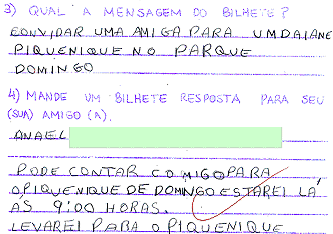 3) QUAL A MENSAGEM DO BILHETE?
CONVIDAR UMA AMIGA PARA UMDAIANE
PIQUENIQUE NO PARQUE
DOMINGO
4) MANDE UM BILHETE RESPOSTA PARA SEU
(SUA) AMIGO (A).
ANAEL
PODE CONTAR COMIGO PARA
O PIQUENIQUE DE DOMNGO ESTAREI LÁ
ÁS 9:00 HORAS.
LEVAREI PARA O PIQUENIQUE